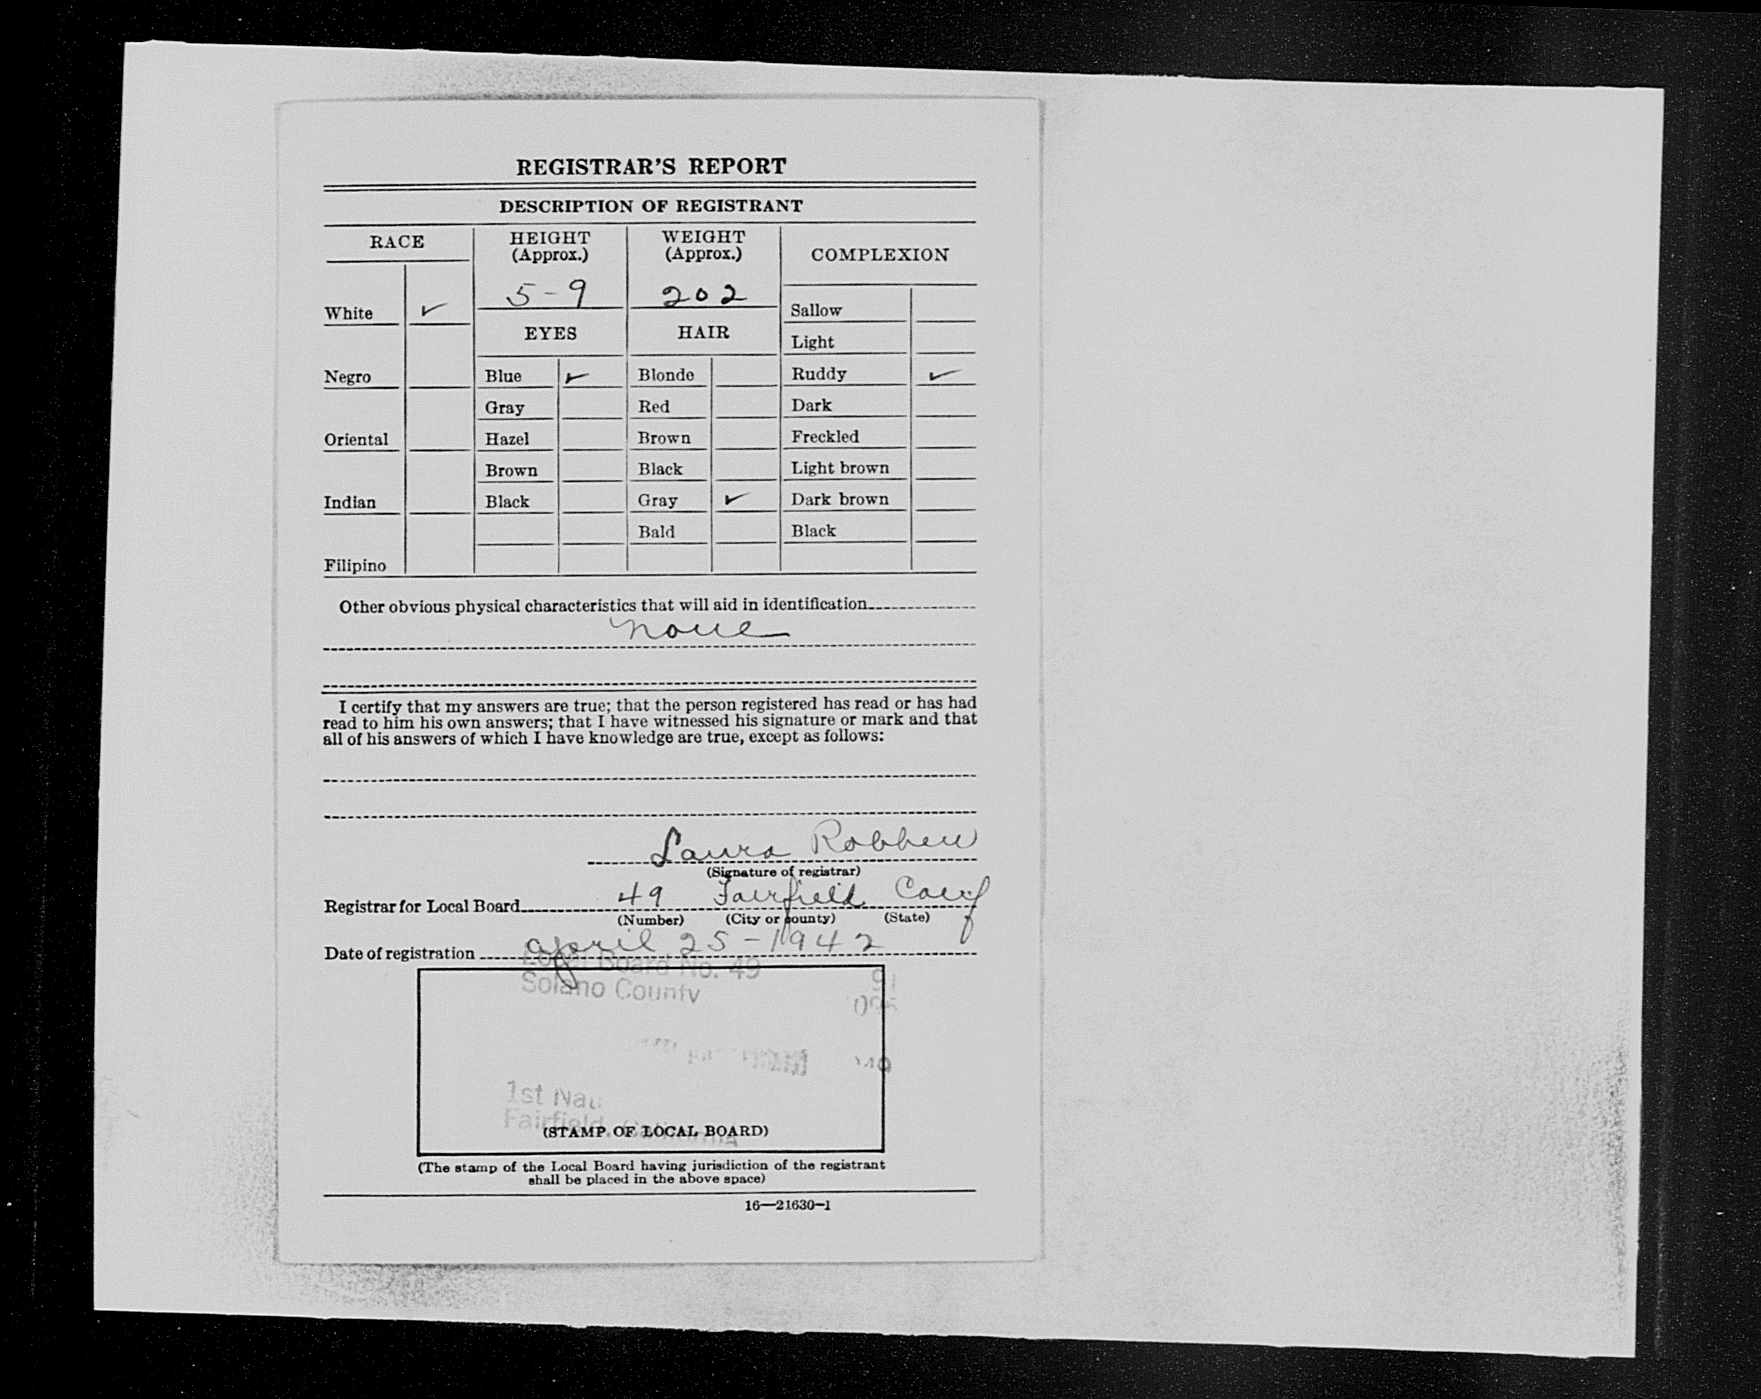 REGISTRAR'S REPORT
DESCRIPTION OF REGISTRANT
RACE
HEIGHT
(Approx.)
WEIGHT
(Approx.)
COMPLEXION
5-9
202
White ✓
Sallow
EYES
HAIR
Light
Negro
Blue ✓
Blonde
Ruddy ✓
Gray
Red
Dark
Oriental
Hazel
Brown
Freckled
Brown
Black
Light brown
Indian
Black
Gray ✓
Dark brown
Bald
Black
Filipino
Other obvious physical characteristics that will aid in identification
none
I certify that my answers are true; that the person registered has read or has had
read to him his own answers; that I have witnessed his signature or mark and that
all of his answers of which I have knowledge are true, except as follows:
Laura Robben
(Signature of registrar)
Registrar for Local Board 49 Fairfield Calif
(Number) (City or county) (State)
Date of registration april 25-1942
Local Board No. 49
Solano County
1st
Fairfield, California
(STAMP OF LOCAL BOARD)
(The stamp of the Local Board having jurisdiction of the registrant
shall be placed in the above space)
16—21630-1